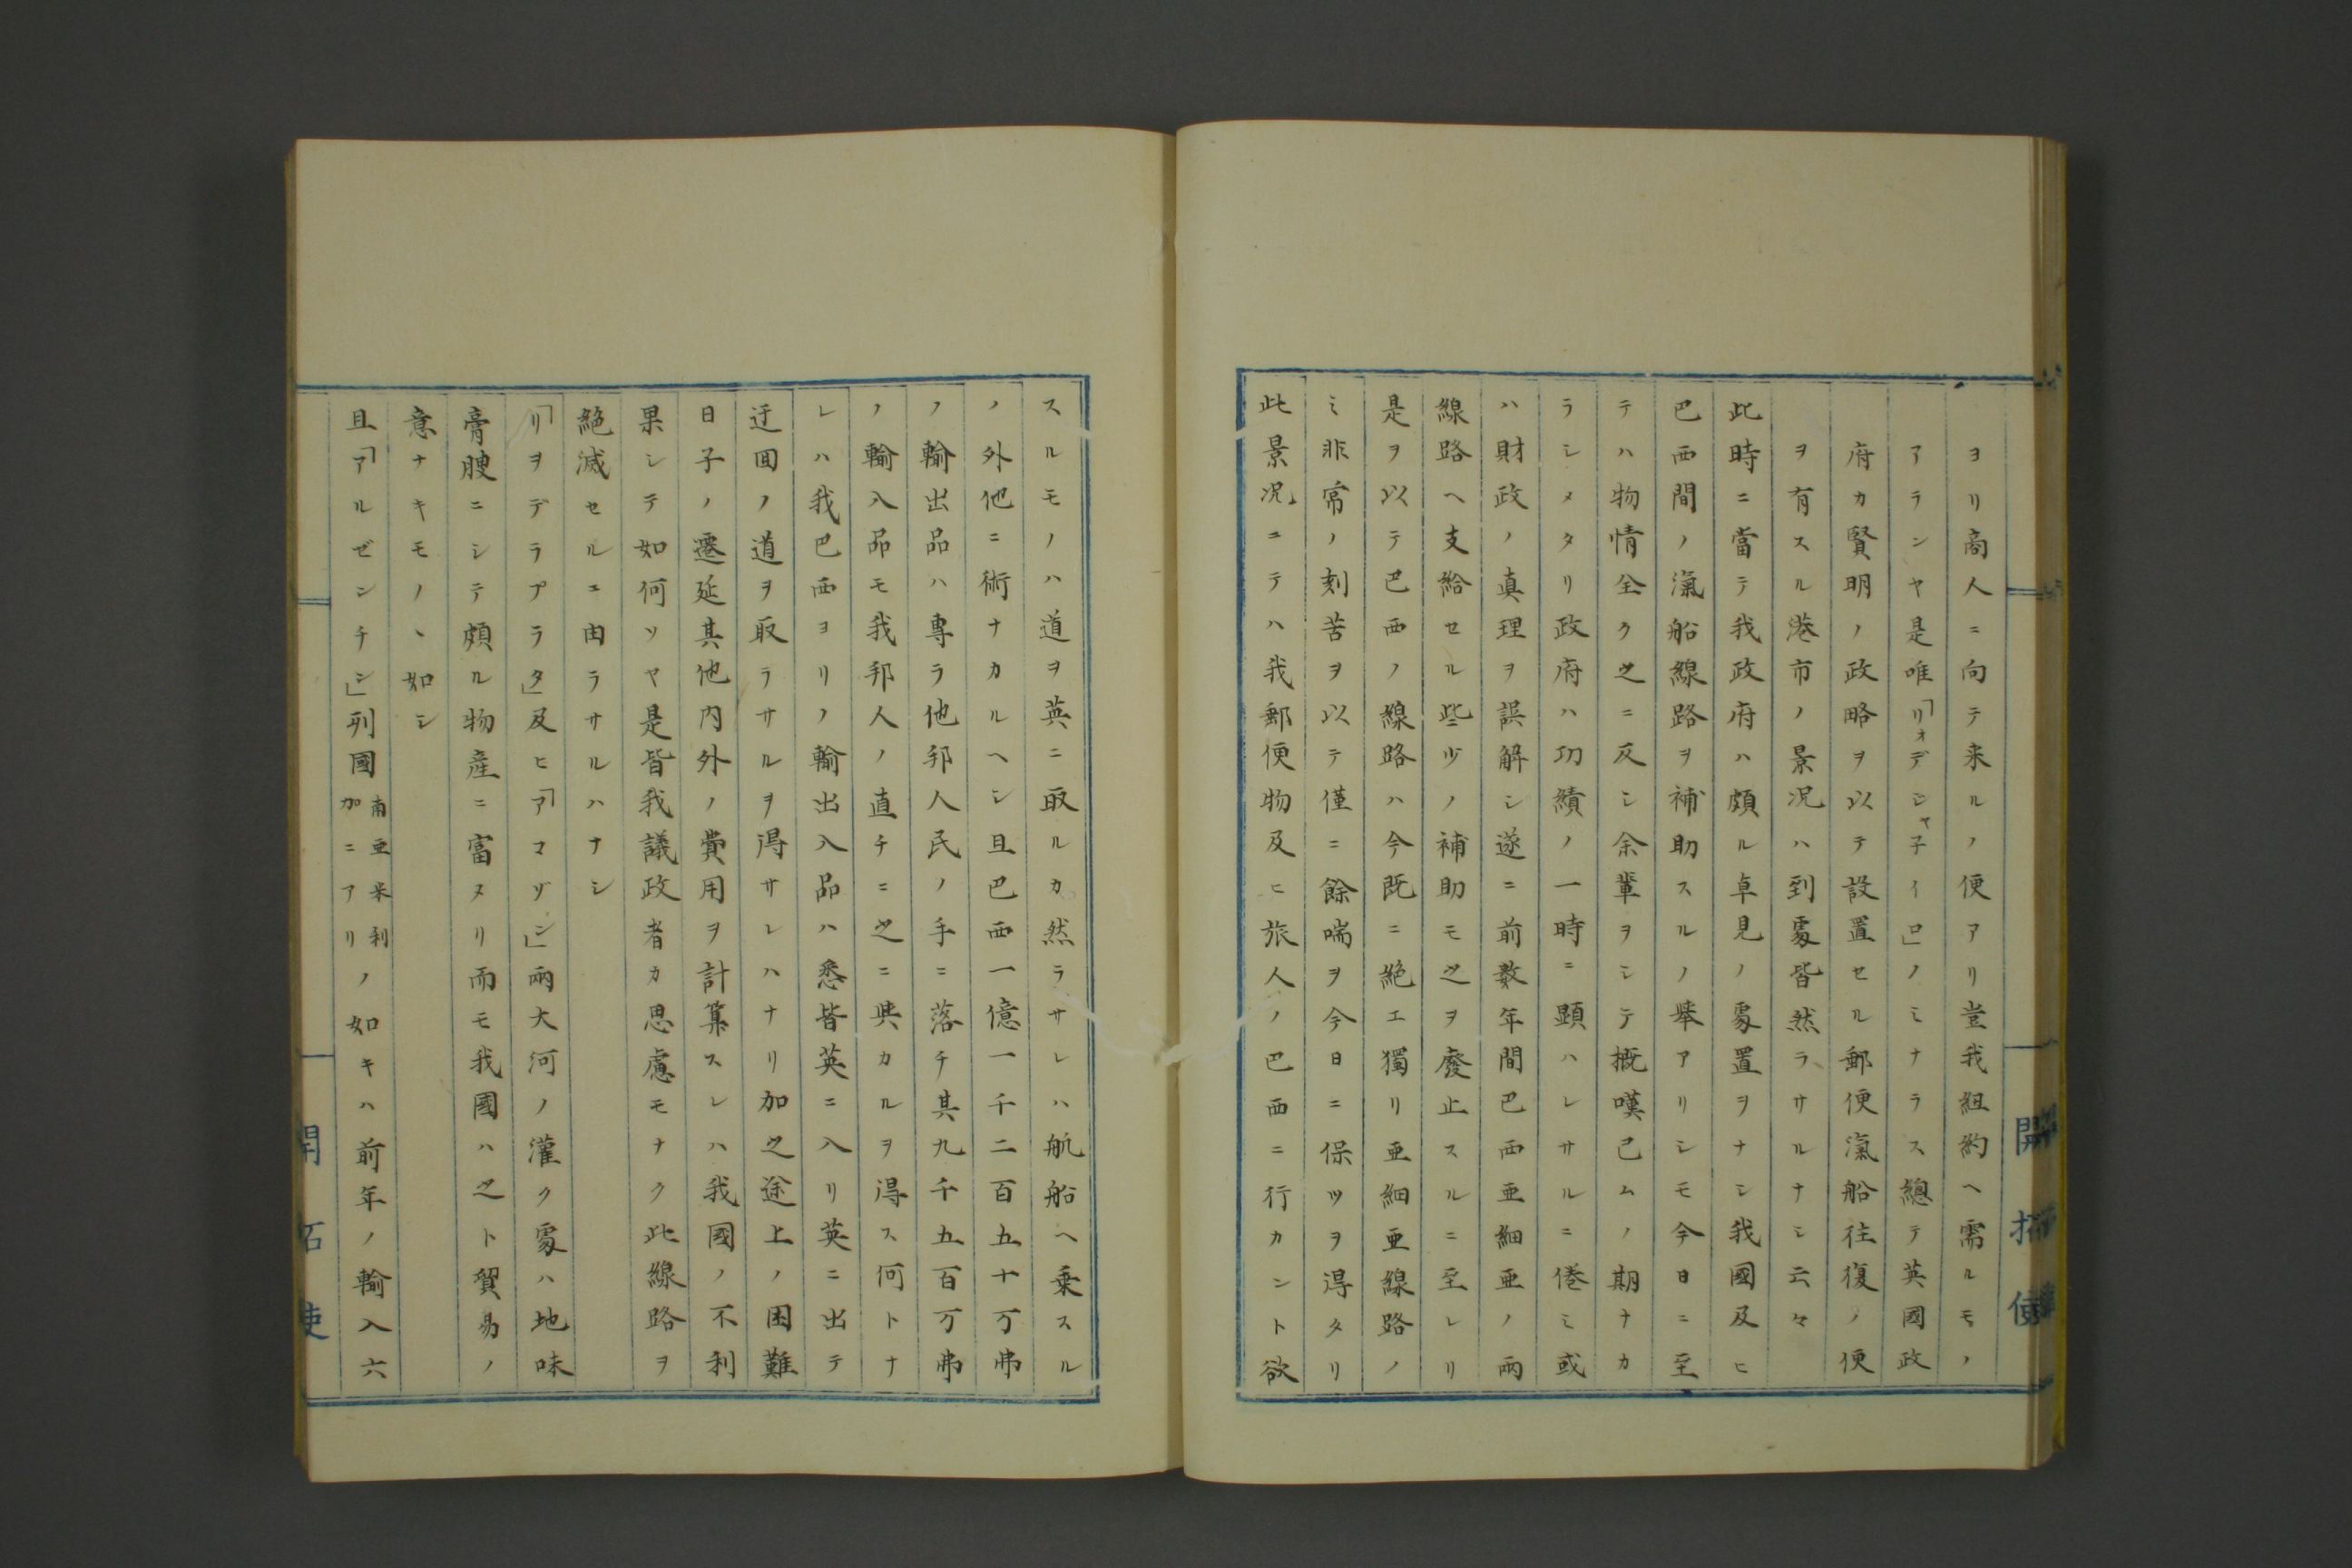 ヨリ商人ニ向テ来ルノ便アリ豈我組約ヘ需ルモノ
アランヤ是唯「リオデジャ子イロ」ノミナラス總テ英國政
府カ賢明ノ政略ヲ以テ設置セル郵便滊船往復ノ便
ヲ有スル港市ノ景况ハ到處皆然ラサルナシ云々
此時ニ當テ我政府ハ頗ル卓見ノ處置ヲナシ我國及ヒ
巴西間ノ滊船線路ヲ補助スルノ擧アリシモ今日ニ至
テハ物情全ク之ニ反シ余輩ヲシテ概嘆已ムノ期ナカ
ラシメタリ政府ハ功績ノ一時ニ顕ハレサルニ倦ミ或
ハ財政ノ真理ヲ誤解シ遂ニ前数年間巴西亜細亜ノ兩
線路ヘ支給セル些少ノ補助モ之ヲ廢止スルニ至レリ
是ヲ以テ巴西ノ線路ハ今既ニ絶エ獨リ亜細亜線路ノ
ミ非常ノ刻苦ヲ以テ僅ニ餘喘ヲ今日ニ保ツヲ得タリ
此景况ニテハ我郵便物及ヒ旅人ノ巴西ニ行カント欲
開拓使
スルモノハ道ヲ英ニ取ルカ然ラサレハ航船ヘ乗スル
ノ外他ニ術ナカルヘシ且巴西一億一千二百五十万弗
ノ輸出品ハ專ラ他邦人民ノ手ニ落チ其九千五百万弗
ノ輸入品モ我邦人ノ直チニ之ニ與カルヲ得ス何トナ
レハ我巴西ヨリノ輸出入品ハ悉皆英ニ入リ英ニ出テ
迂回ノ道ヲ取ラサルヲ得サレハナリ加之途上ノ困難
日子ノ遷延其他内外ノ費用ヲ計算スレハ我國ノ不利
果シテ如何ソヤ是皆我議政者カ思慮モナク此線路ヲ
絶滅セルニ由ラサルハナシ
「リヲデラプラタ」及ヒ「アマゾン」兩大河ノ灌ク處ハ地味
膏腴ニシテ頗ル物産ニ富ヌリ而モ我國ハ之ト貿易ノ
意ナキモノヽ如シ
且「アルゼンチン」列國南亜米利加ニアリノ如キハ前年ノ輸入六
開拓使